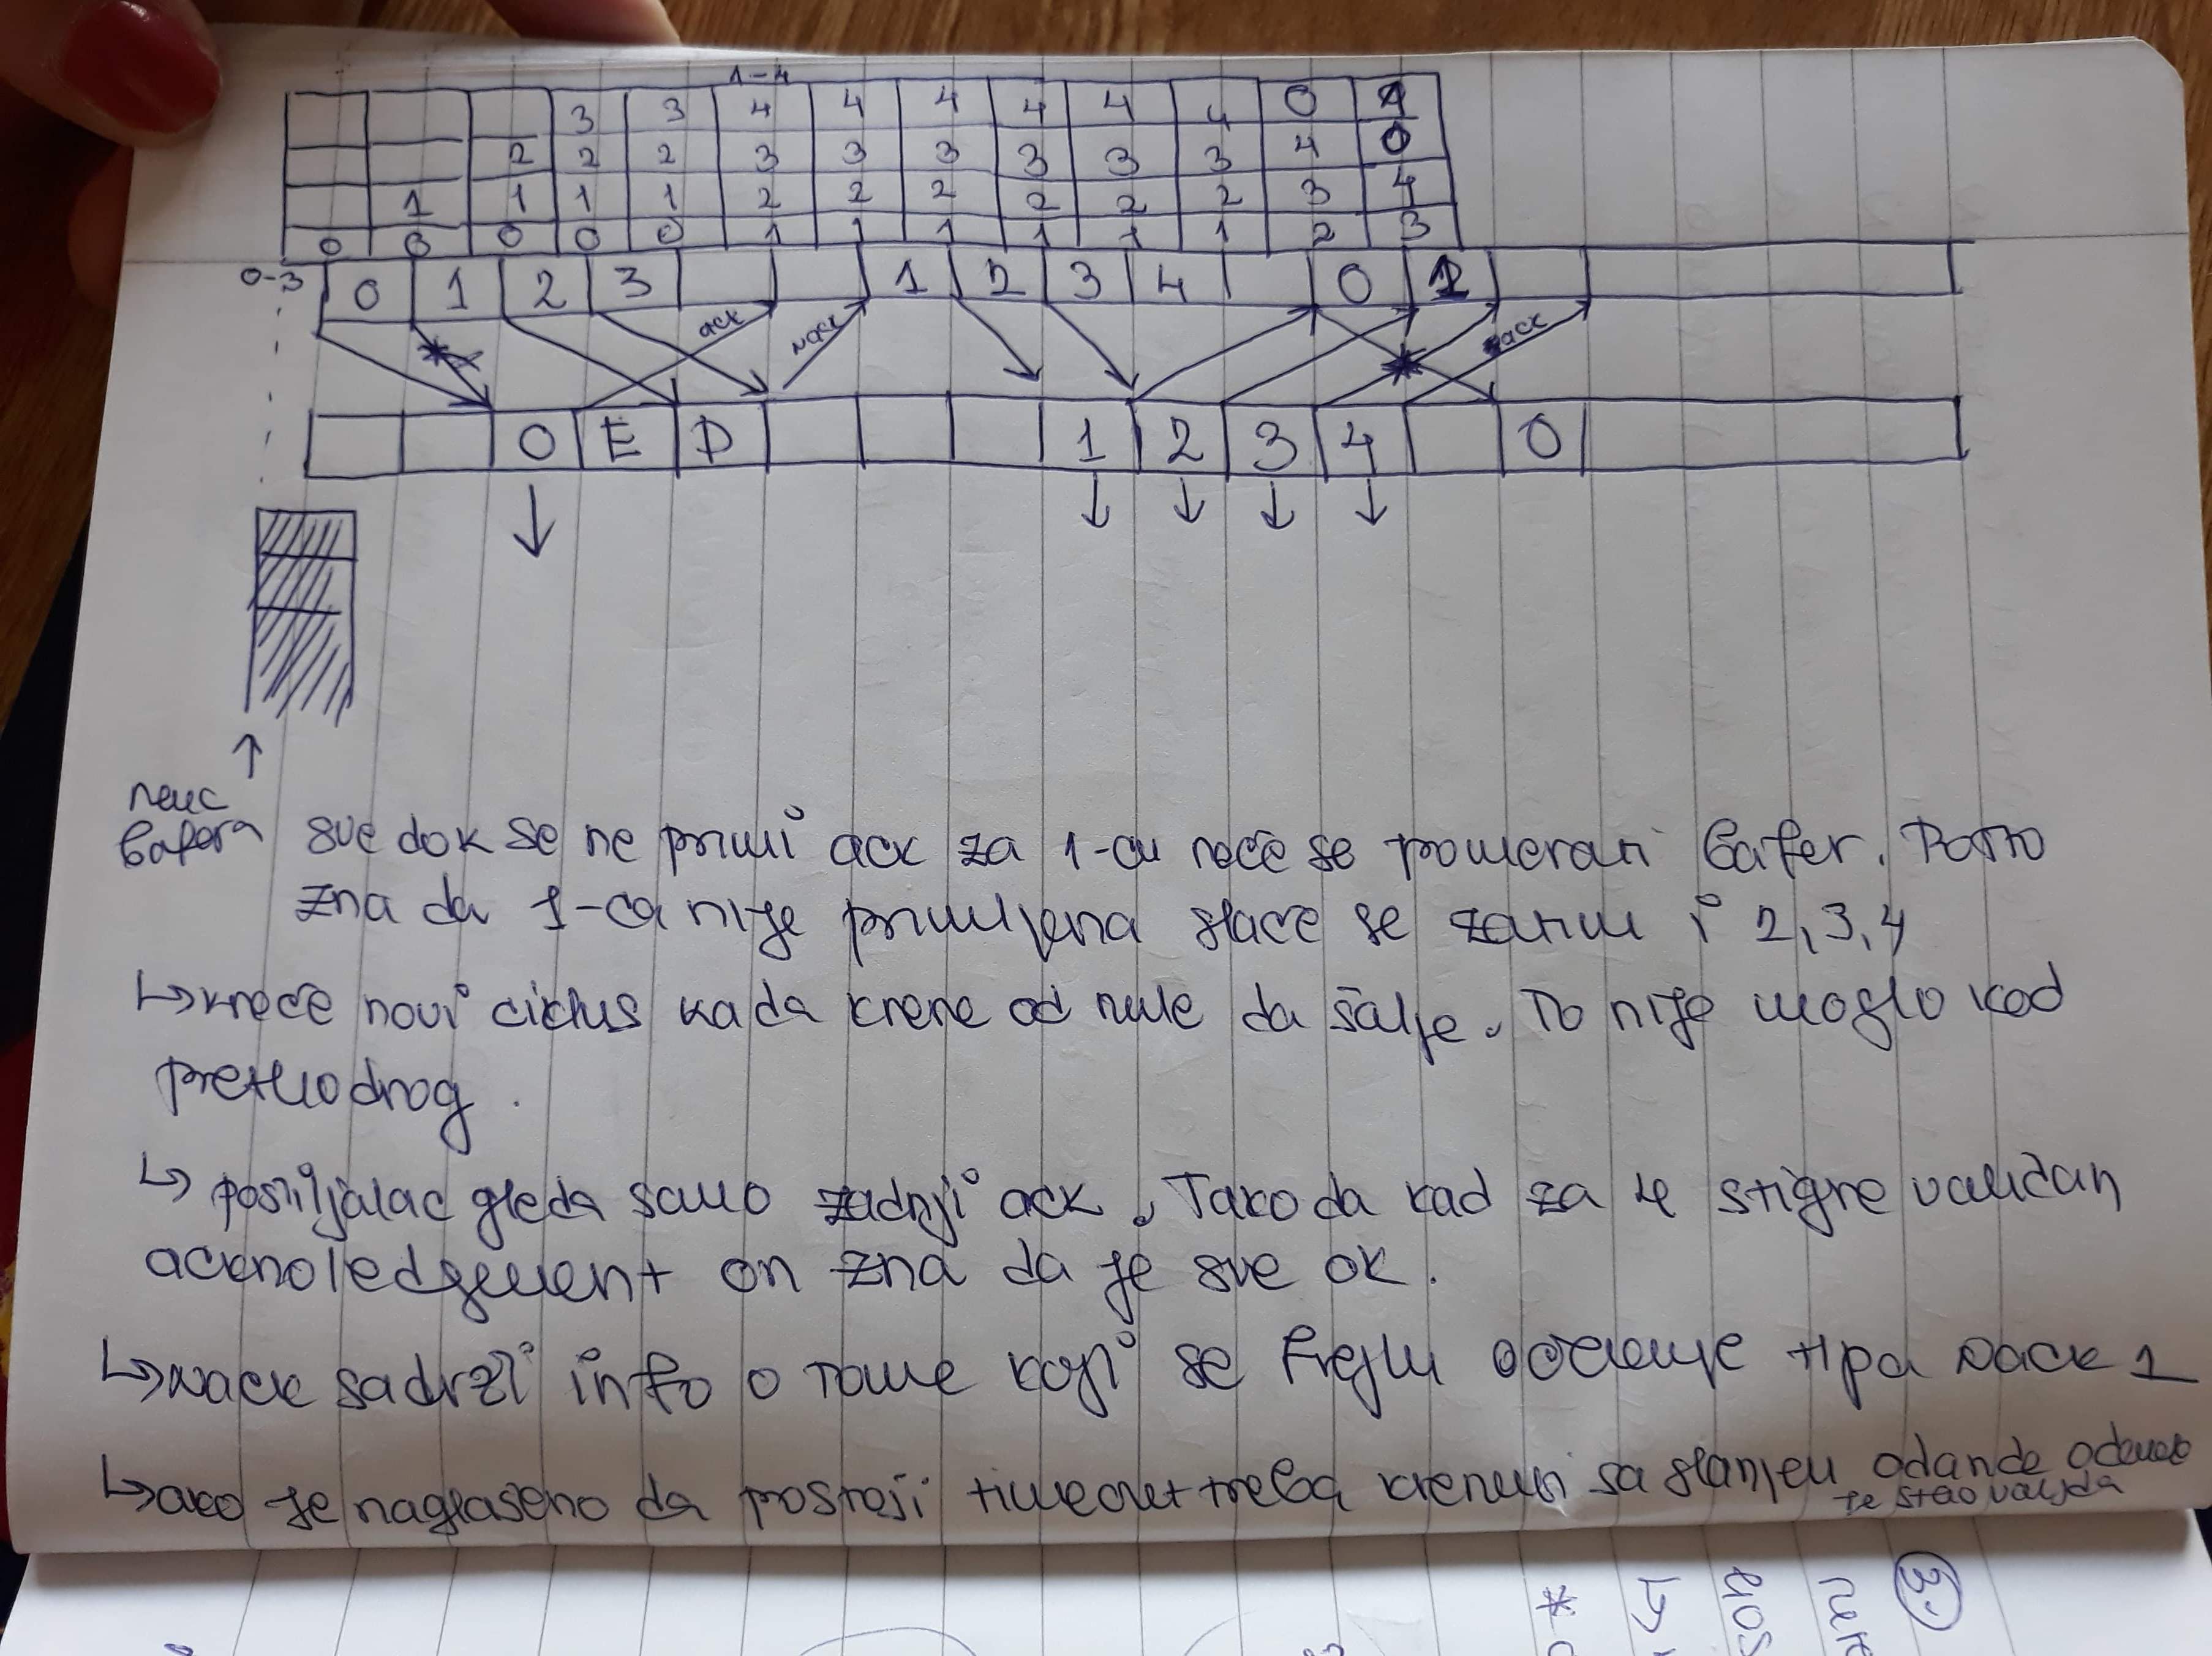 1-4
3 3 4 4 4 4 4 4 0 1
2 2 2 3 3 3 3 3 3 4 0
1 1 1 1 2 2 2 2 2 2 3 4
0 0 0 0 0 1 1 1 1 1 1 2 3
0-3 0 1 2 3 1 2 3 4 0 1
ack nack ack
0 E D 1 2 3 4 0
bafera sve dok se ne primi ack za 1-cu neće se pomerati bafer. Pošto
zna da 1-ca nije primljena slaće se zatim i 2,3,4
↳ kreće novi ciklus kada krene od nule da šalje. To nije moglo kod
prethodnog.
↳ posiljalac gleda samo zadnji ack. Tako da kad za 4 stigne validan
acknoledgement on zna da je sve ok.
↳ nack sadrži info o tome koji se frejm očekuje tipa nack 1
↳ ako je naglašeno da postoji timeout treba krenuti sa slanjem odande odakle
je stao valjda
3.
*